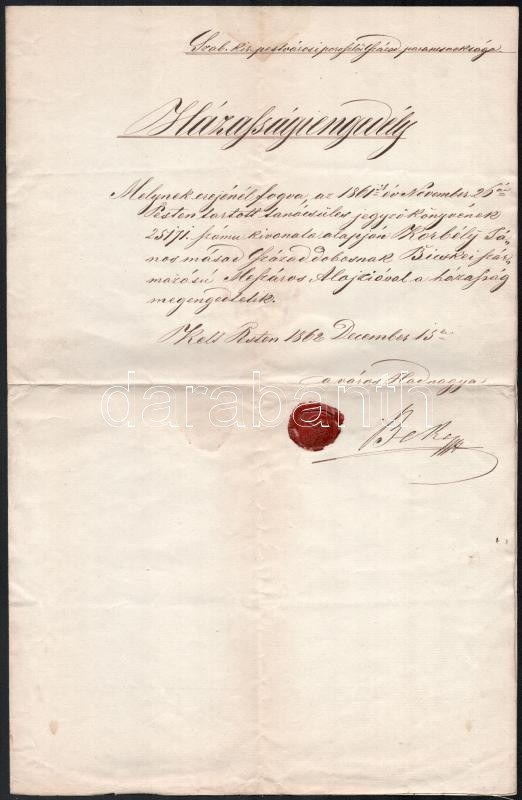 Szab. kir. pestvárosi porosztói Század parancsnoksága
Házassági engedély
Melynek erejénél fogva, az 1861ik év November 26án
Pesten tartott tanácsülés jegyző könyvének
25171. számu kivonata alapján Korbély Já„
nos másad Század dobosnak Bicskei szár„
mazású Mészáros Alojziával a házasság
megengedtetik.
Kelt Pesten 1862 December 15én
a város Hadnagya
darabanth
Beke